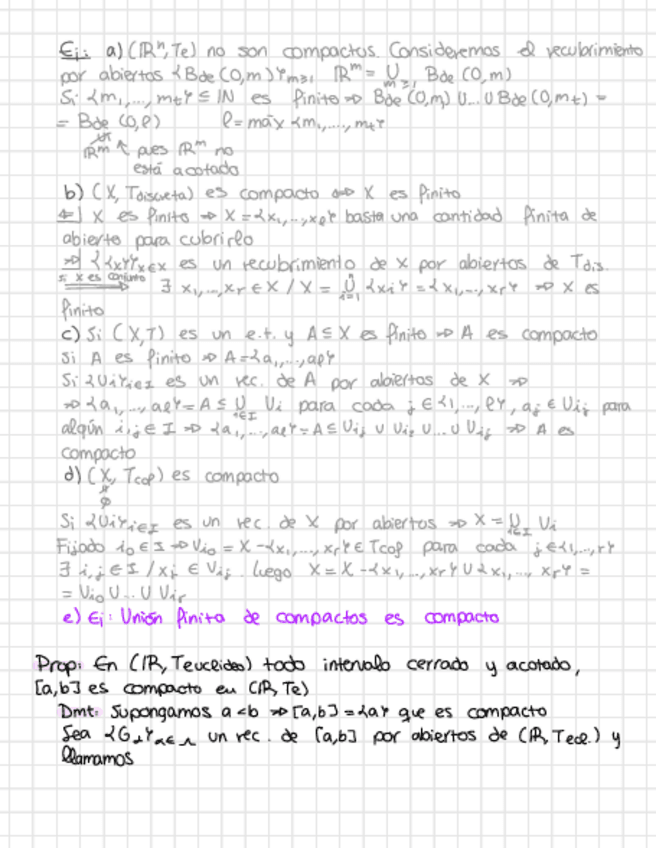 Ej: a) (ℝⁿ, Te) no son compactos. Consideremos el recubrimiento
por abiertos {Bde (0,m)}m≥1, ℝᵐ = ∪m≥1 Bde (0,m)
Si {m₁,..., mt} ⊆ ℕ es finito ⇒ Bde (0,m₁) ∪...∪ Bde (0,mt) =
= Bde (0,ℓ) ℓ = máx {m₁,..., mt}
ℝᵐ ↖ pues ℝᵐ no
está acotado
b) (X, Tdiscreta) es compacto ⇔ X es finito
⇐] X es finito ⇒ X = {x₁,...,xₑ} basta una cantidad finita de
abierto para cubrirlo
⇒] {{x}}x∈X es un recubrimiento de X por abiertos de Tdis.
si X es conjunto ⇒ ∃ x₁,...,xr ∈ X / X = ∪ᵢ₌₁ {xi} = {x₁,...,xr} ⇒ X es
finito
c) Si (X,T) es un e.t. y A ⊆ X es finito ⇒ A es compacto
Si A es finito ⇒ A = {a₁,...,aℓ}
Si {Ui}i∈I es un rec. de A por abiertos de X ⇒
⇒ {a₁,..., aℓ} = A ⊆ ∪i∈I Ui para cada j ∈ {1,..., ℓ}, aj ∈ Uij para
algún i,j ∈ I ⇒ {a₁,...,aℓ} = A ⊆ Uij ∪ Ui₂ ∪...∪ Uij ⇒ A es
compacto
d) (X, Tcof) es compacto
∅
Si {Ui}i∈I es un rec. de X por abiertos ⇒ X = ∪i∈I Ui
Fijado i₀ ∈ I ⇒ Ui₀ = X - {x₁,..., xr} ∈ Tcof para cada j ∈ {1,..., r}
∃ i,j ∈ I / xj ∈ Vij. Luego X = X - {x₁,..., xr} ∪ {x₁,..., xr} =
= Ui₀ ∪...∪ Uir
e) Ej: Unión finita de compactos es compacto
Prop: En (ℝ, Teuclídea) todo intervalo cerrado y acotado,
[a,b] es compacto en (ℝ, Te)
Dmt: Supongamos a < b ⇒ [a,b] = {a} que es compacto
Sea {Gα}α∈Λ un rec. de [a,b] por abiertos de (ℝ, Tecl.) y
llamamos